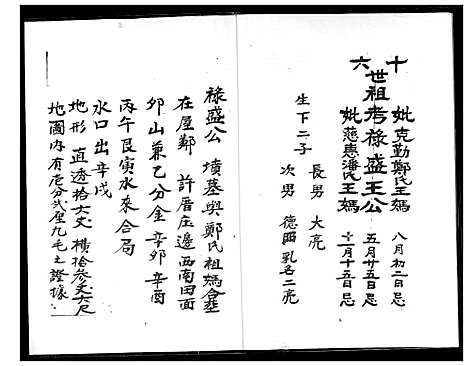 十六世祖考祿盛王公 五月廿五日忌
妣克勤鄭氏王媽 八月初二日忌
妣慈惠潘氏王媽 十二月十五日忌
生下二子 長男 大亮
次男 德四 乳名二亮
祿盛公 墳墓與鄭氏祖媽合塟
在屋鄞 許厝庄邊西南田面
卯山兼乙分金辛卯辛酉
丙午艮寅水來合局
水口出辛戌
地形 直透拾六丈 橫拾參丈六尺
地圖內有 分弍厘九毛之證據